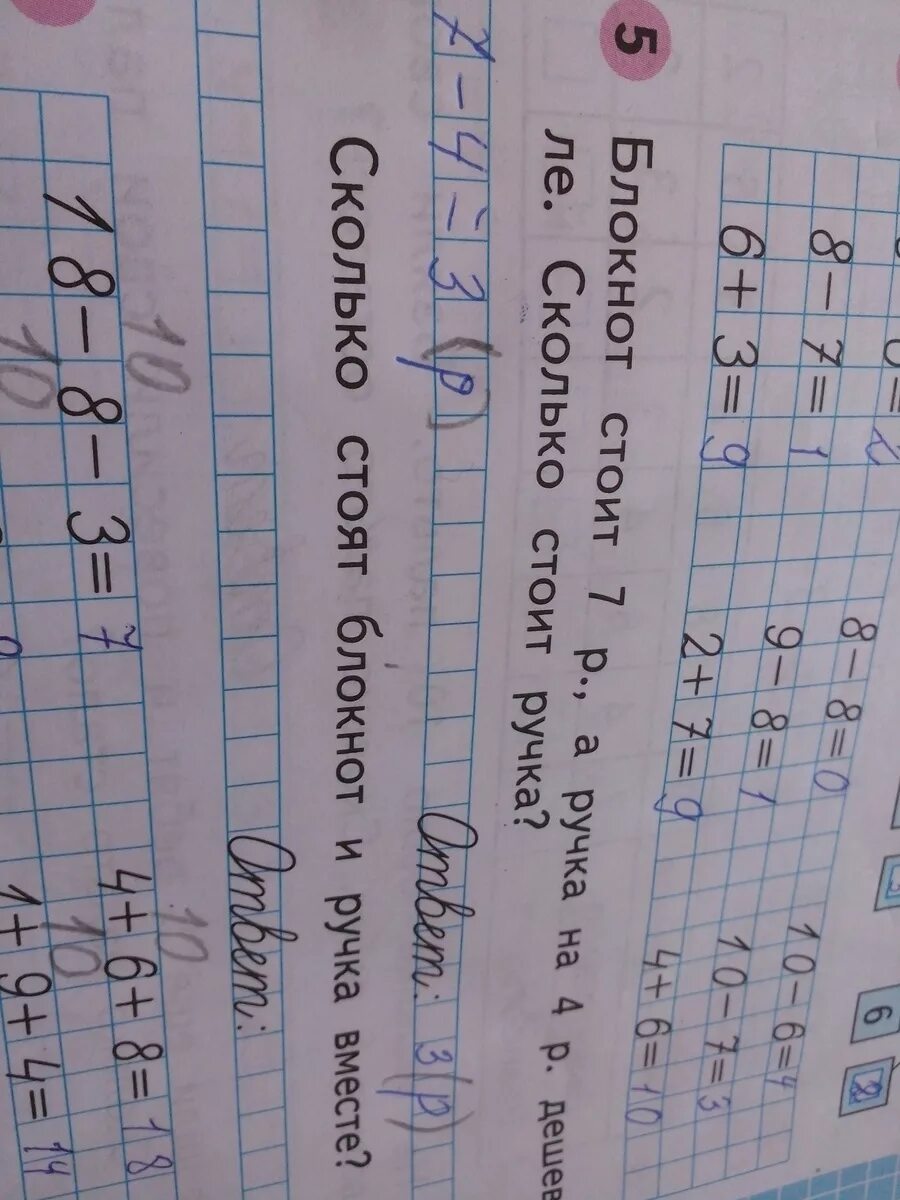 8-8=0 10-6=4
8-7=1 9-8=1 10-7=3
6+3=9 2+7=9 4+6=10
5 Блокнот стоит 7 р., а ручка на 4 р. дешев
ле. Сколько стоит ручка?
7-4=3 (р) Ответ: 3(р)
Сколько стоят блокнот и ручка вместе?
Ответ:
10 10
18-8-3=7 4+6+8=18
10 10
1+9+4=14